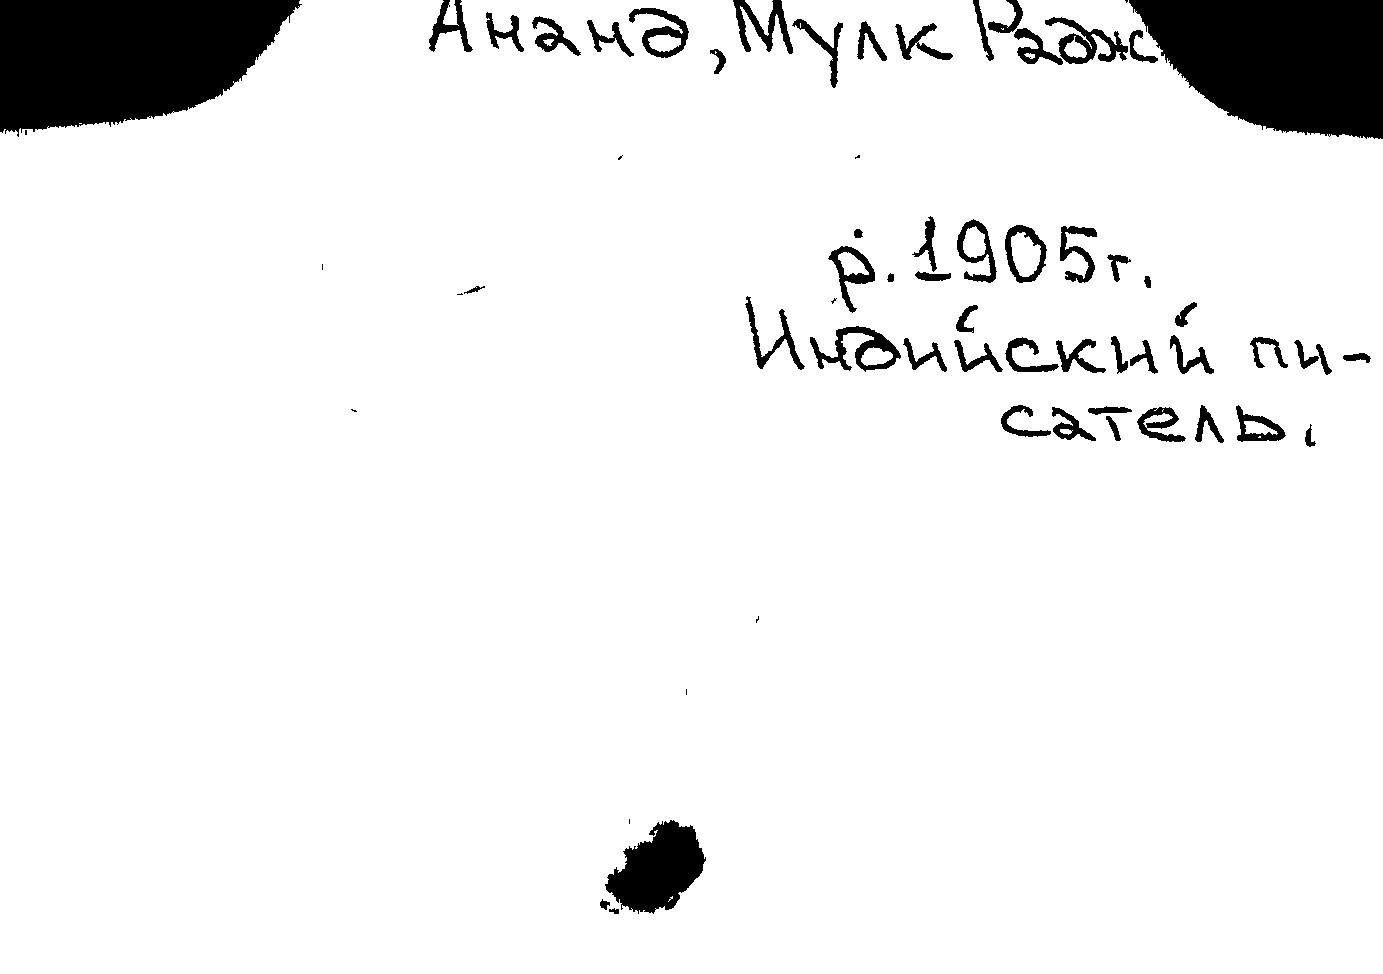 Ананд, Мулк Радж
р. 1905г.
Индийский пи-
сатель.